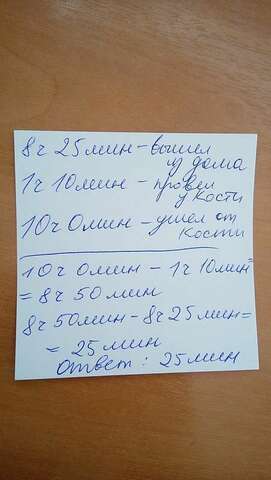 8ч 25мин - вышел
из дома
1ч 10мин - провел
у Кости
10ч 0мин - ушел от
Кости
10ч 0мин - 1ч 10мин=
= 8ч 50мин
8ч 50мин - 8ч 25мин=
= 25мин
ответ: 25мин